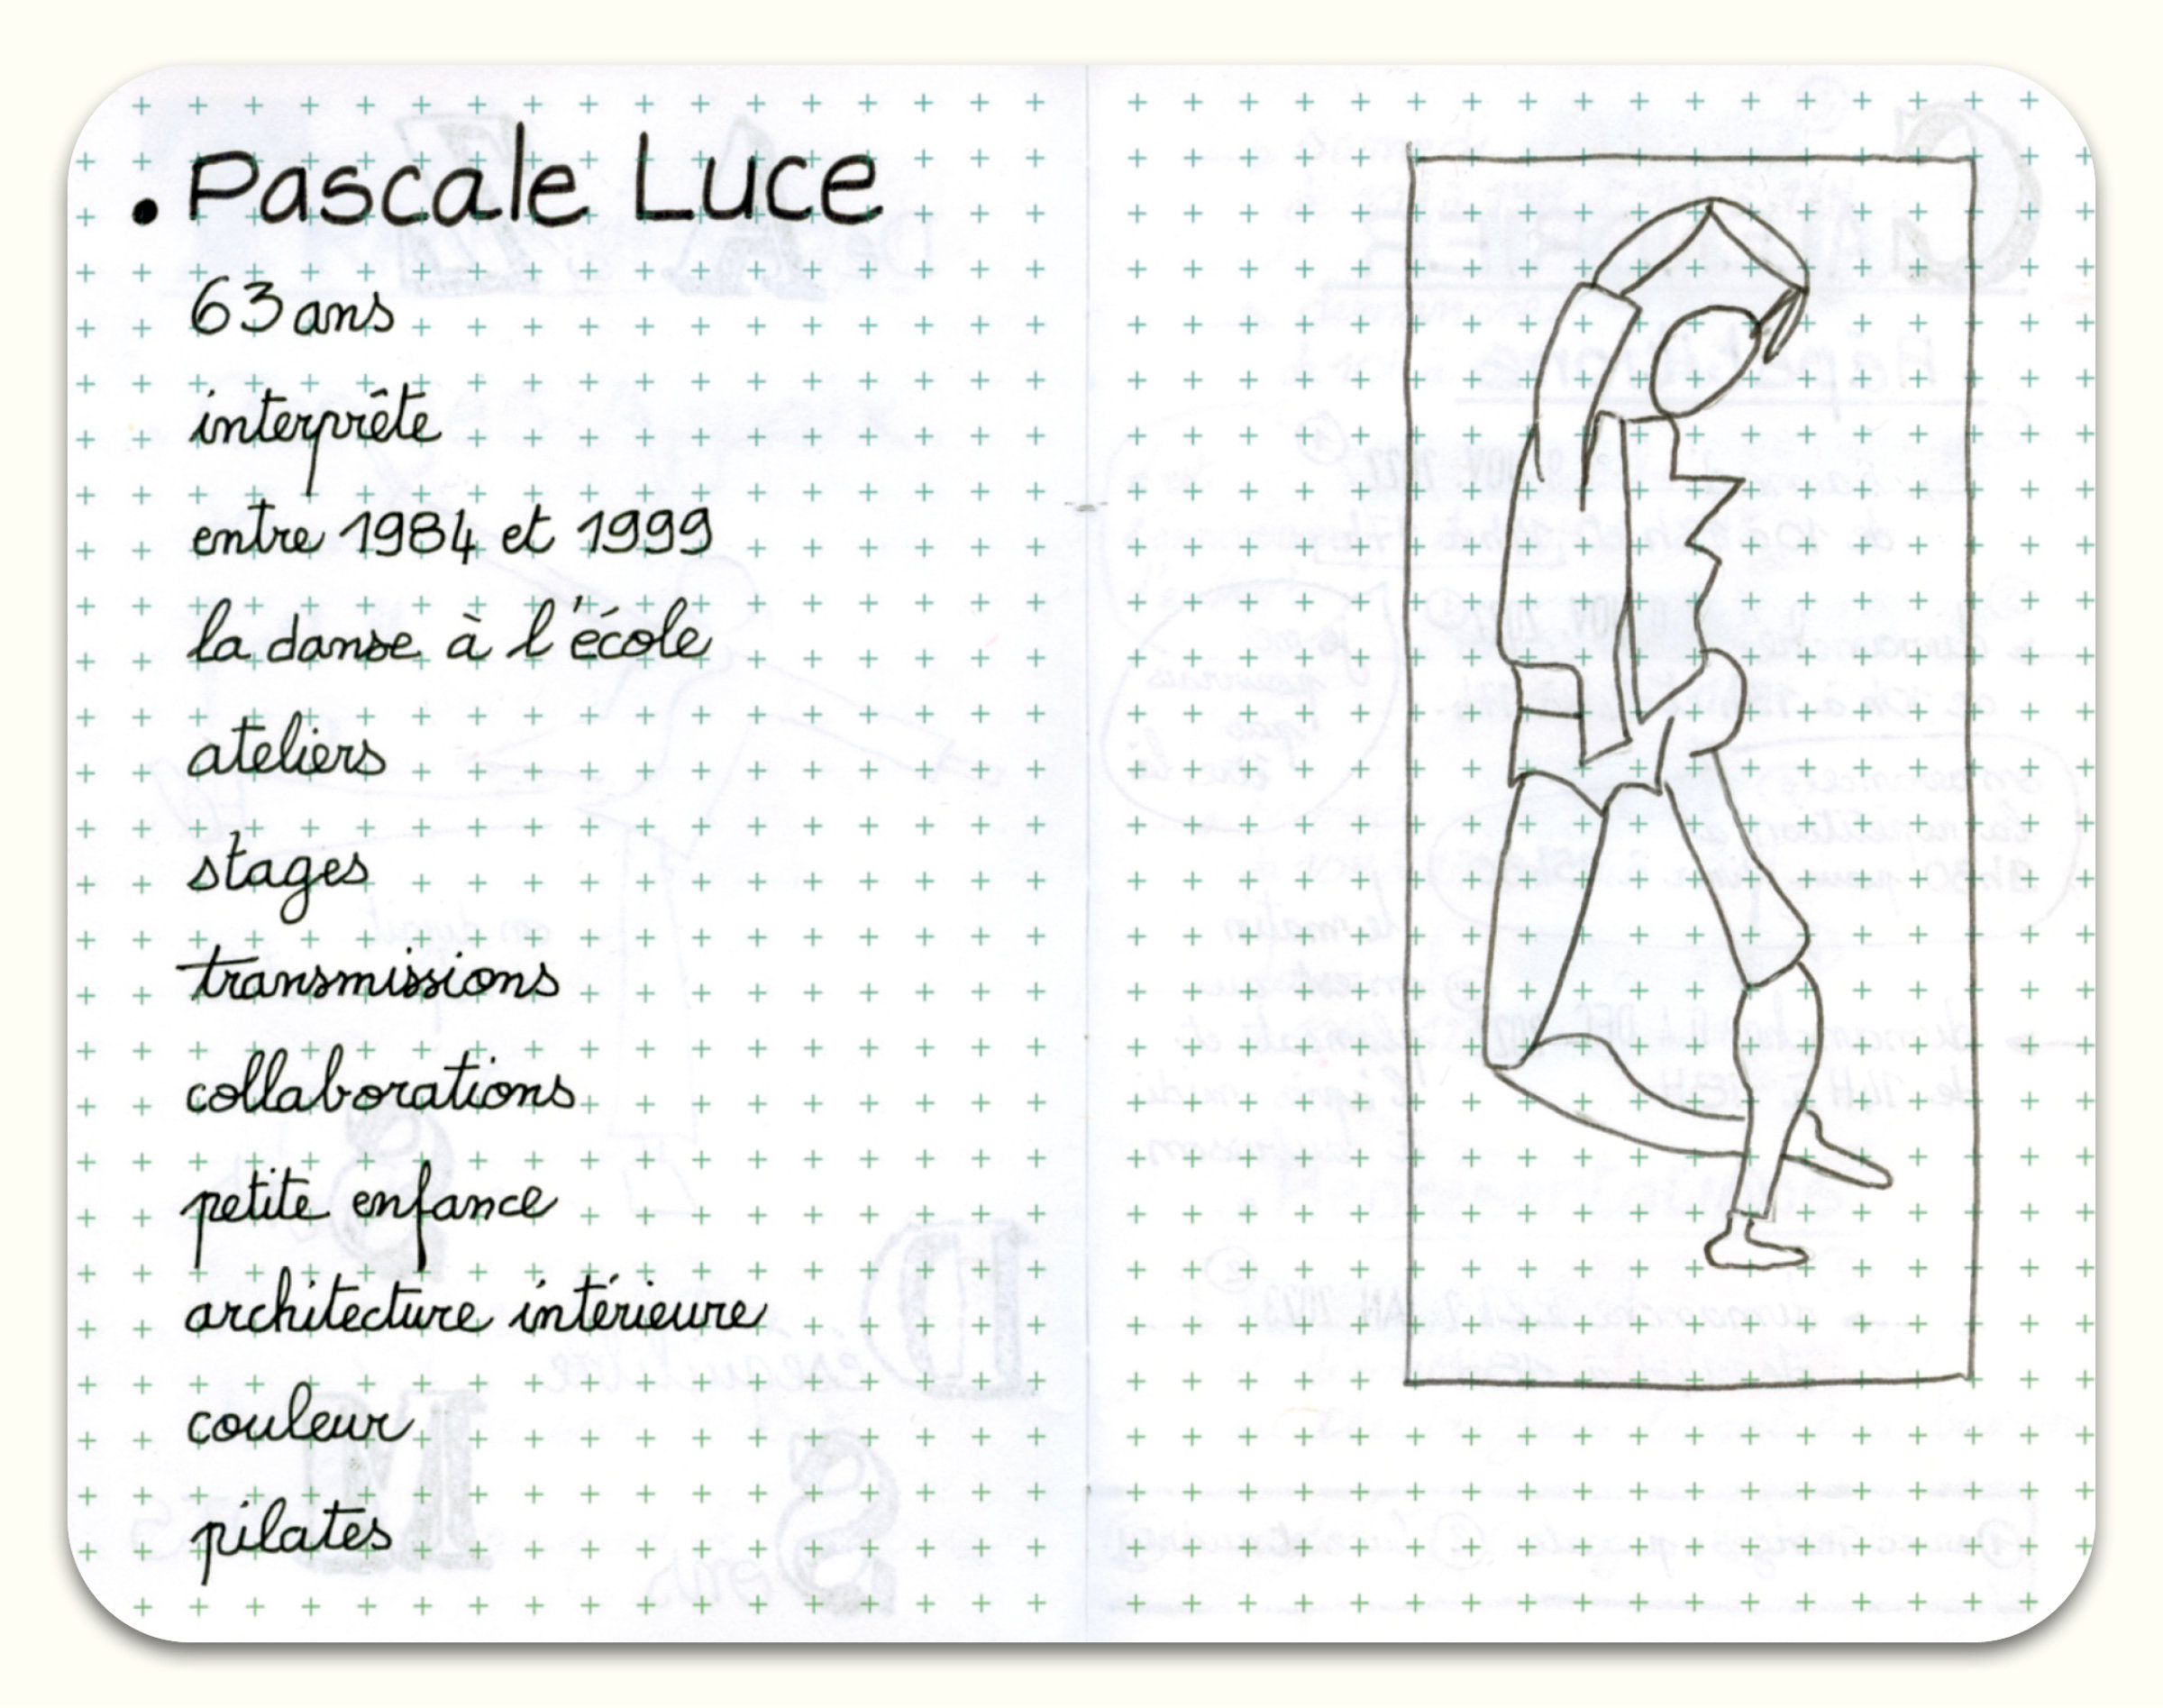 • Pascale Luce
63 ans
interprête
entre 1984 et 1999
la danse à l'école
ateliers
stages
transmissions
collaborations
petite enfance
architecture intérieure
couleur
pilates